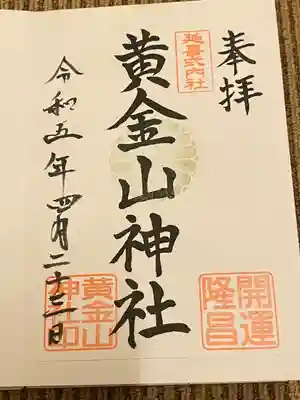 奉拝
延喜式内社
開運
隆昌
黄金山神社
黄金山
神印
令和五年四月二十三日